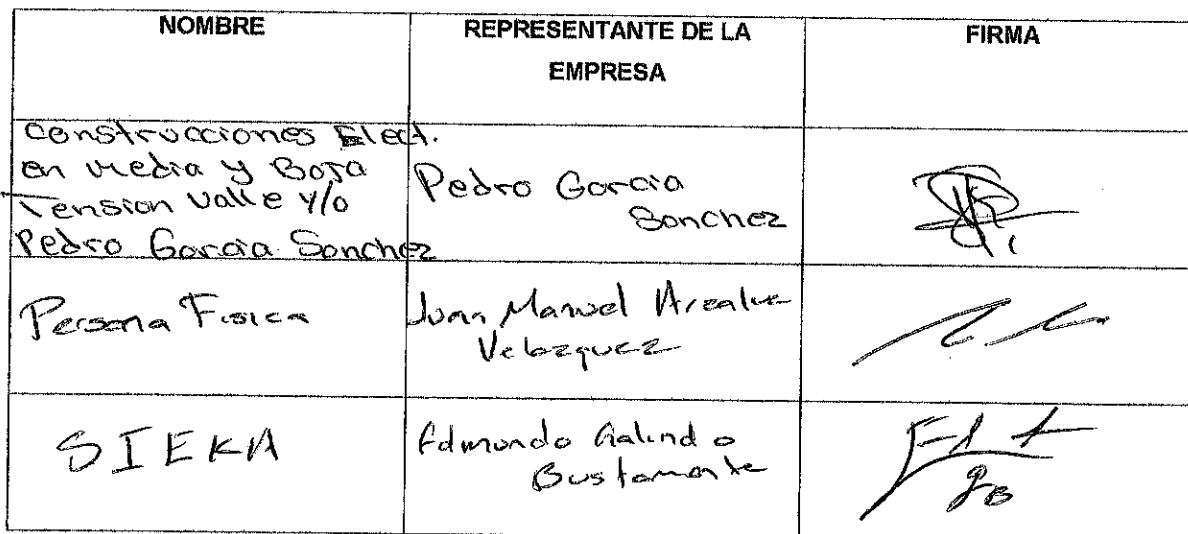 NOMBRE
REPRESENTANTE DE LA
EMPRESA
FIRMA
Construcciones Elect.
en Media y Baja
Tension Valle y/o
Pedro Garcia Sanchez
Pedro Garcia
Sanchez
Persona Fisica
Juan Manuel
Velazquez
SIEKA
Edmundo Galindo
Bustamante